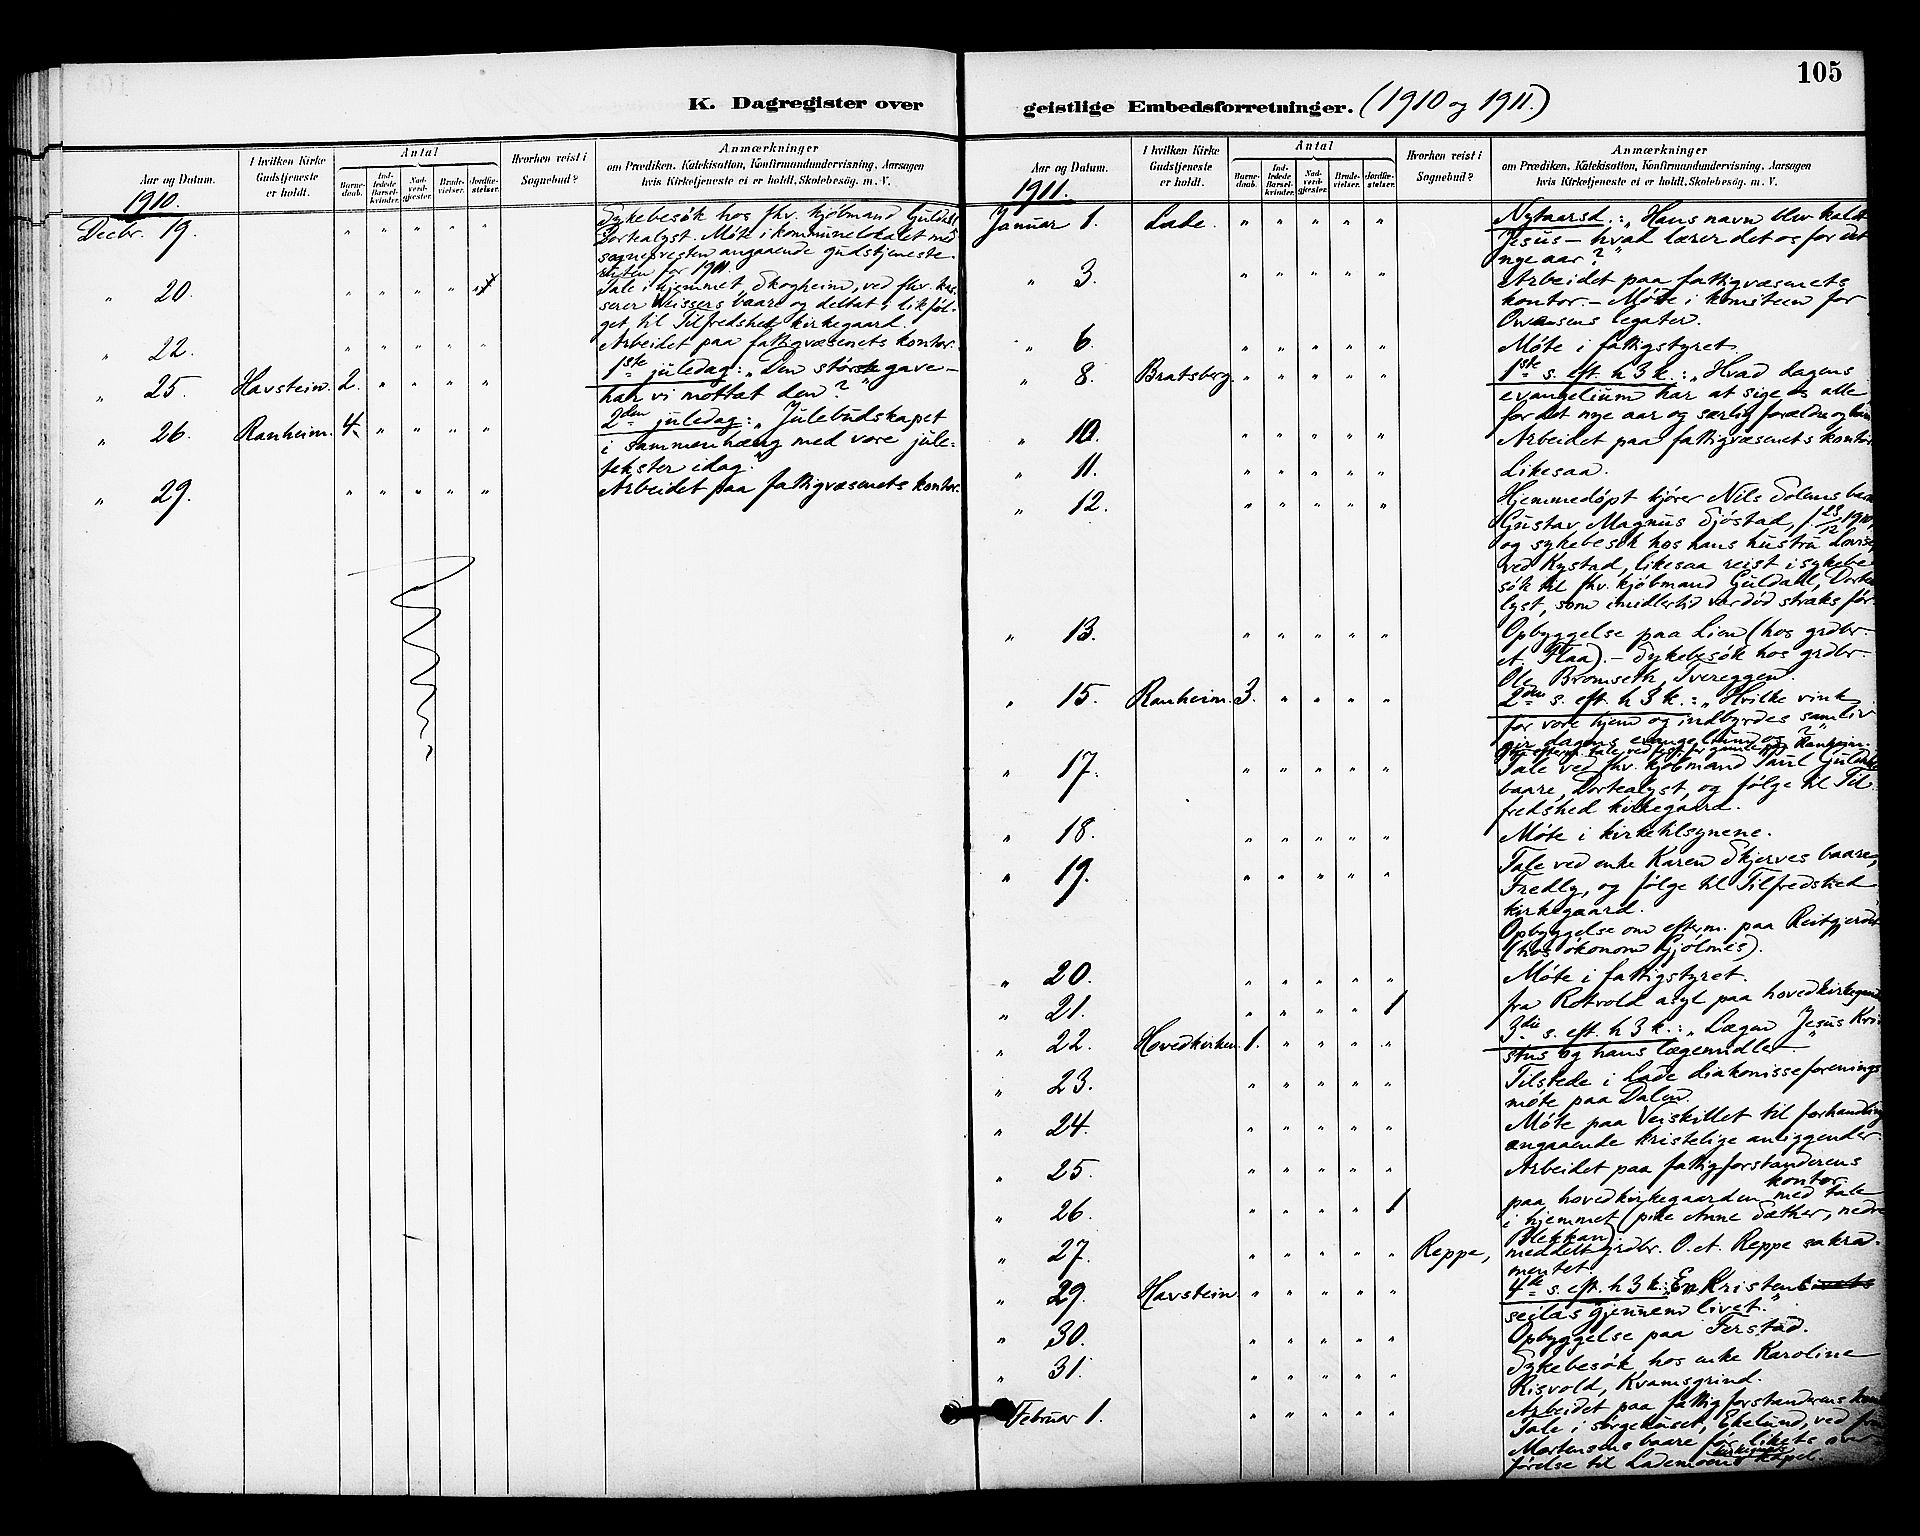 105
K. Dagregister over geistlige Embedsforretninger. (1910 og 1911.)
Aar og Datum.
I hvilken Kirke Gudstjeneste er holdt.
Antal
Barnedaab.
Indledede Barselkvinder.
Nadverdgjester.
Brudevielser.
Jordfæstelser.
Hvorhen reist i Sognebud?
Anmærkninger
om Prædiken, Katekisation, Konfirmandundervisning, Aarsagen
hvis Kirketjeneste ei er holdt, Skolebesøg, m. V.
1910.
Decbr. 19. " " " " " Sykebesök hos fhv. kjöbmand Guldahl
Dortealyst. Möte i kommunelokalet med
sognepresten angaaende gudstjeneste-
listen for 1911.
" 20. " " " " Tale i hjemmet, Skogheim, ved fhv. kas-
serer Weissers baare og deltat i likföl-
get til Tilfredshed kirkegaard.
" 22. " " " " " Arbeidet paa fattigvæsenets kontor.
" 25. Havstein. 2. " " " " 1ste juledag: "Den störste gave –
har vi mottat den?"
" 26. Ranheim. 4. " " " " 2den juledag: "Julebudskapet
i sammenhæng med vore jule-
tekster idag."
" 29. " " " " " Arbeidet paa fattigvæsenets kontor.
Aar og Datum.
I hvilken Kirke Gudstjeneste er holdt.
Antal
Barnedaab.
Indledede Barselkvinder.
Nadverdgjester.
Brudevielser.
Jordfæstelser.
Hvorhen reist i Sognebud?
Anmærkninger
om Prædiken, Katekisation, Konfirmandundervisning, Aarsagen
hvis Kirketjeneste ei er holdt, Skolebesøg, m. V.
1911.
Januar 1. Lade. " " " " " Nytaarsd.: "Hans navn blev kaldt
Jesus – hvad lærer det os for det
nye aar?"
" 3. " " " " " Arbeidet paa fattigvæsenets
kontor. – Möte i komiteen for
Owensens legater.
" 6. " " " " " Möte i fattigstyret
" 8. Bratsberg. " " " " " 1ste s. eft. h 3 k.: "Hvad dagens
evangelium har at sige os alle
for det nye aar og særlig forældre og
" 10. " " " " " Arbeidet paa fattigvæsenets kontor
" 11. " " " " " Likesaa.
" 12. " " " " " Hjemmedöpt kjörer Nils Solems barn
Gustav Magnus Sjöstad, f. 23/12 1910,
og sykebesök hos hans hustru Lovise,
ved Kystad, likesaa reist i sykebe-
sök til fhv. kjöbmand Guldahl, Dortea-
lyst, som imidlertid var död straks för.
" 13. " " " " " Opbyggelse paa Lien (hos grdbr.
A. Flaa). – Sykebesök hos grdbr.
Ole Bromseth, Tvereggen.
" 15. Ranheim. 3. " " " " 2den s. eft. h 3 k.: "Hvilke vink
for vore hjem og indbyrdes samliv
gir dagens evangelium os?"
" 17. " " " " " Tale ved fhv. kjöbmand Paul Guldahls
baare, Dortealyst, og fölge til Til-
fredshed kirkegaard.
" 18. " " " " " Möte i kirketilsynene.
" 19. " " " " " Tale ved enke Karen Skjerves baare,
Fredly, og fölge til Tilfredshed
kirkegaard.
Opbyggelse om efterm. paa Reitgjerdet
(hos ökonom Gjölmes).
" 20. " " " " " Möte i fattigstyret.
" 21. " " " " 1 fra Rotvold asyl paa hovedkirkegaard
" 22. Hovedkirken. 1. " " " " 3die s. eft. h 3 k.: "Lægen Jesus Kri-
stus og hans lægemidler."
" 23. " " " " " Tilstede i Lade diakonisseforenings
möte paa Dalen.
" 24. " " " " " Möte paa Veiskillet til forhandling
angaaende kristelige anliggender.
" 25. " " " " " Arbeidet paa fattigforstanderens
kontor
" 26. " " " " 1 paa hovedkirkegaarden med tale
i hjemmet (pike Anne Sæther, nedre
Blekkan)
" 27. " " " " " Reppe, meddelt grdbr. O. A. Reppe sakra-
mentet.
" 29. Havstein. " " " " " 4de s. eft. h 3 k.: "En kristens
seilas gjennem livet."
" 30. " " " " " Opbyggelse paa Ferstad.
" 31. " " " " " Sykebesök hos enke Karoline
Risvold, Kvamsgrind.
Februar 1. " " " " " Arbeidet paa fattigforstanderens
Tale i sörgehuset, Ekelund, ved
Mortensens baare för likets over-
förelse til Lademoens kapel.